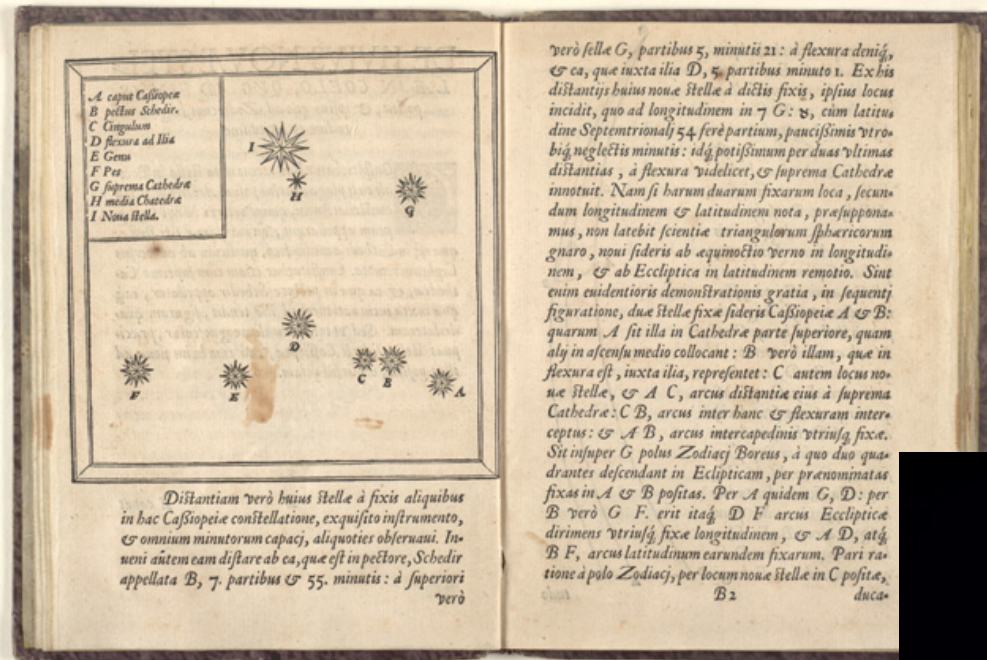 A caput Cassiopeæ
B pectus Schedir.
C Cingulum
D flexura ad Ilia
E Genu
F Pes
G suprema Cathedræ
H media Chatedræ
I Noua stella.
I
H
G
D
F
E
C
B
A
Distantiam verò huius stellæ à fixis aliquibus
in hac Cassiopeiæ constellatione, exquisito instrumento,
& omnium minutorum capacj, aliquoties obseruaui. In-
ueni aũtem eam distare ab ea, quæ est in pectore, Schedir
appellata B, 7. partibus & 55. minutis: à superiori
verò
verò sellæ G, partibus 5, minutis 21: à flexura deniq́,
& ea, quæ iuxta ilia D, 5, partibus minuto 1. Ex his
distantijs huius nouæ stellæ à dictis fixis, ipsius locus
incidit, quo ad longitudinem in 7 G: ♉, cùm latitu-
dine Septemtrionalj 54 ferè partium, paucissimis vtro-
biq́, neglectis minutis: idq́ potissimum per duas vltimas
distantias, à flexura videlicet, & suprema Cathedræ
innotuit. Nam si harum duarum fixarum loca, secun-
dum longitudinem & latitudinem nota, præsuppona-
mus, non latebit scientiæ triangulorum sphæricorum
gnaro, noui sideris ab æquinoctio verno in longitudi-
nem, & ab Eccliptica in latitudinem remotio. Sint
enim euidentioris demonstrationis gratia, in sequentj
figuratione, duæ stellæ fixæ sideris Cassiopeiæ A & B:
quarum A sit illa in Cathedræ parte superiore, quam
alij in ascensu medio collocant: B verò illam, quæ in
flexura est, iuxta ilia, repræsentet: C autem locus no-
uæ stellæ, & A C, arcus distantiæ eius à suprema
Cathedræ: C B, arcus inter hanc & flexuram inter-
ceptus: & A B, arcus intercapedinis vtriusq́ fixæ.
Sit insuper G polus Zodiacj Boreus, à quo duo qua-
drantes descendant in Eclipticam, per prænominatas
fixas in A & B positas. Per A quidem G, D: per
B verò G F. erit itaq́ D F arcus Eclipticæ
dirimens vtriusq́ fixæ longitudinem, & A D, atq́
B F, arcus latitudinum earundem fixarum. Pari ra-
tione à polo Zodiacj, per locum nouæ stellæ in C positæ,
B 2 duca-